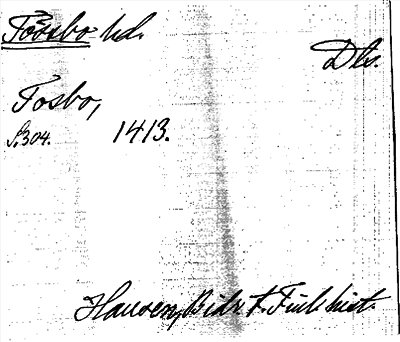 Tössbo hd.
Dls.
Tosbo,
S. 304. 1413.
Hausen, Bidr. t. Finl. hist.